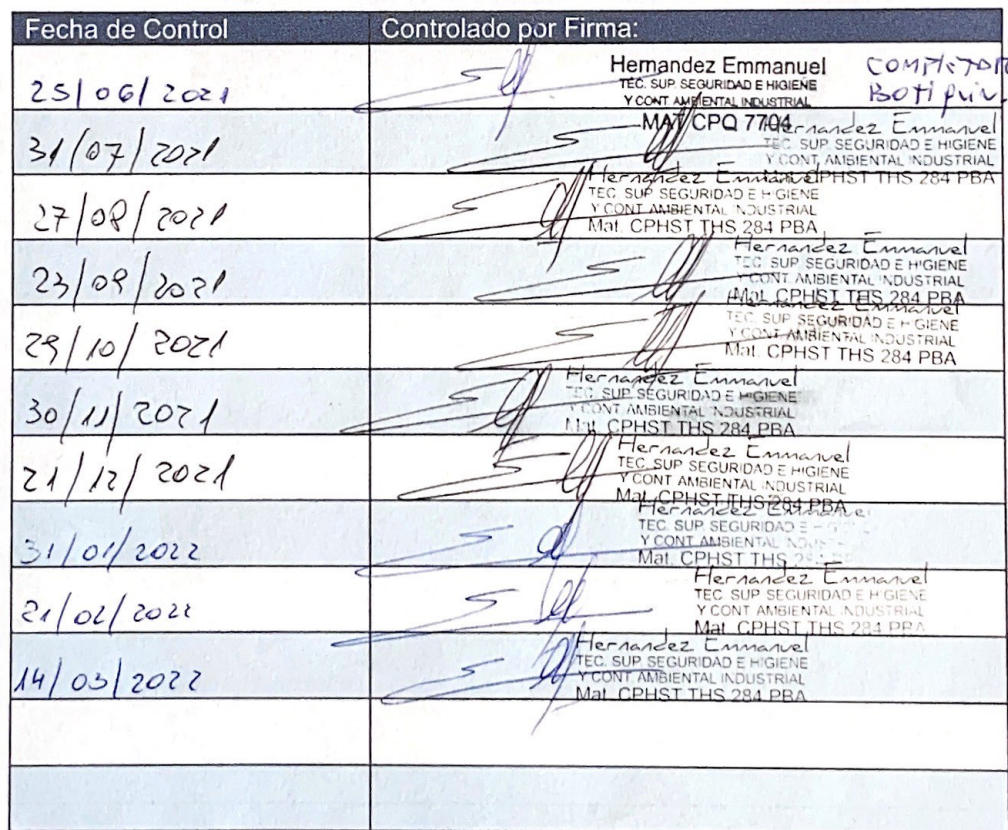 Fecha de Control Controlado por Firma:
25/06/2021 Hernandez Emmanuel
TEC. SUP. SEGURIDAD E HIGIENE
Y CONT. AMBIENTAL INDUSTRIAL
MAT CPQ 7704
Botiquin
31/07/2021 Hernandez Emmanuel
TEC. SUP. SEGURIDAD E HIGIENE
Y CONT. AMBIENTAL INDUSTRIAL
CPHST THS 284 PBA
27/08/2021 Hernandez Emmanuel
TEC. SUP. SEGURIDAD E HIGIENE
Y CONT. AMBIENTAL INDUSTRIAL
Mat. CPHST THS 284 PBA
23/09/2021 Hernandez Emmanuel
TEC. SUP. SEGURIDAD E HIGIENE
Y CONT. AMBIENTAL INDUSTRIAL
Mat. CPHST THS 284 PBA
29/10/2021 Hernandez Emmanuel
TEC. SUP. SEGURIDAD E HIGIENE
Y CONT. AMBIENTAL INDUSTRIAL
Mat. CPHST THS 284 PBA
30/11/2021 Hernandez Emmanuel
TEC. SUP. SEGURIDAD E HIGIENE
Y CONT. AMBIENTAL INDUSTRIAL
Mat. CPHST THS 284 PBA
21/12/2021 Hernandez Emmanuel
TEC. SUP. SEGURIDAD E HIGIENE
Y CONT. AMBIENTAL INDUSTRIAL
Mat. CPHST THS 284 PBA
31/01/2022 Hernandez Emmanuel
TEC. SUP. SEGURIDAD E
Y CONT. AMBIENTAL
Mat. CPHST THS
21/02/2022 Hernandez Emmanuel
TEC. SUP. SEGURIDAD E HIGIENE
Y CONT. AMBIENTAL INDUSTRIAL
Mat. CPHST THS 284 PBA
14/03/2022 Hernandez Emmanuel
TEC. SUP. SEGURIDAD E HIGIENE
Y CONT. AMBIENTAL INDUSTRIAL
Mat. CPHST THS 284 PBA